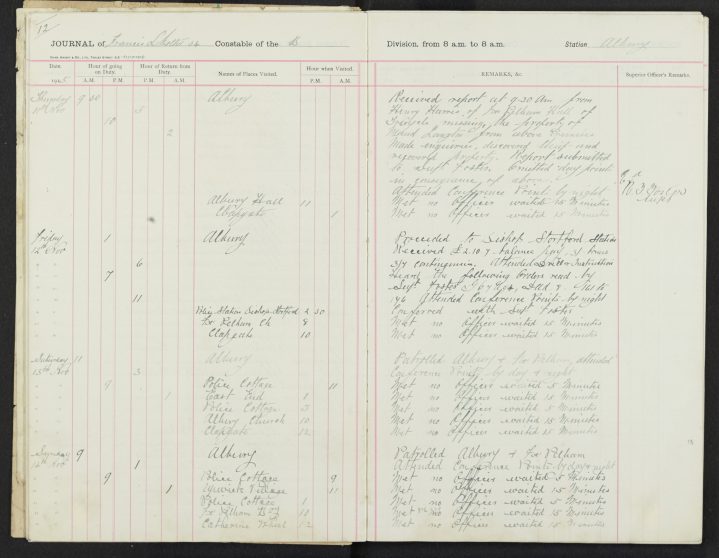 12
JOURNAL of Francis Constable of the B Division, from 8 a.m. to 8 a.m. Station Albury
Date. Hour of going on Duty. Hour of Return from Duty. Names of Places Visited. Hour when Visited. REMARKS, &c. Superior Officer's Remarks.
A.M. P.M. P.M. A.M. P.M. A.M.
Thursday 9 30 Albury Received report at 9-30 Am from
11th Nov 5 Henry Harris, of Fx Pelham Hall of
10 missing, the property of
2 from above
Made enquiries, discovered and
recovered property. Report submitted
to Supt Foster. Omitted day point
in consequence of above.
Attended Conference Points by night
Albury Hall 11 Met no Officer waited 15 Minutes
Clapgate 1 Met no Officer waited 15 Minutes
Friday 1 Albury Proceeded to Bishop Stortford Station
12th Nov Received £2.10.7 balance pay
6 Attended Drill & Instruction
7 Heard the following Orders read by
Supt Foster
11 Attended Conference Points by night
Police Station Bishop Stortford 2 30 Conferred with Supt Foster
Fx Pelham Ch 8 Met no Officer waited 15 Minutes
Clapgate 10 Met no Officer waited 15 Minutes
Saturday 11 Albury Patrolled Albury & Fx Pelham, attended
13th Nov 3 Conference Points by day & night
9 Police Cottage 11 Met no Officer waited 5 Minutes
1 East End 1 Met no Officer waited 15 Minutes
Police Cottage 3 Met no Officer waited 5 Minutes
Albury Church 10 Met no Officer waited 15 Minutes
Clapgate 12 Met no Officer waited 15 Minutes
Sunday 9 Albury Patrolled Albury & Fx Pelham
14th Nov 1 Attended Conference Points by day & night
9 Police Cottage 9 Met no Officer waited 5 Minutes
1 Village 11 Met no Officer waited 15 Minutes
Police Cottage 1 Met no Officer waited 5 Minutes
Fx Pelham 10 Met no Officer waited 15 Minutes
Catherine Wheel 12 Met no Officer waited 15 Minutes